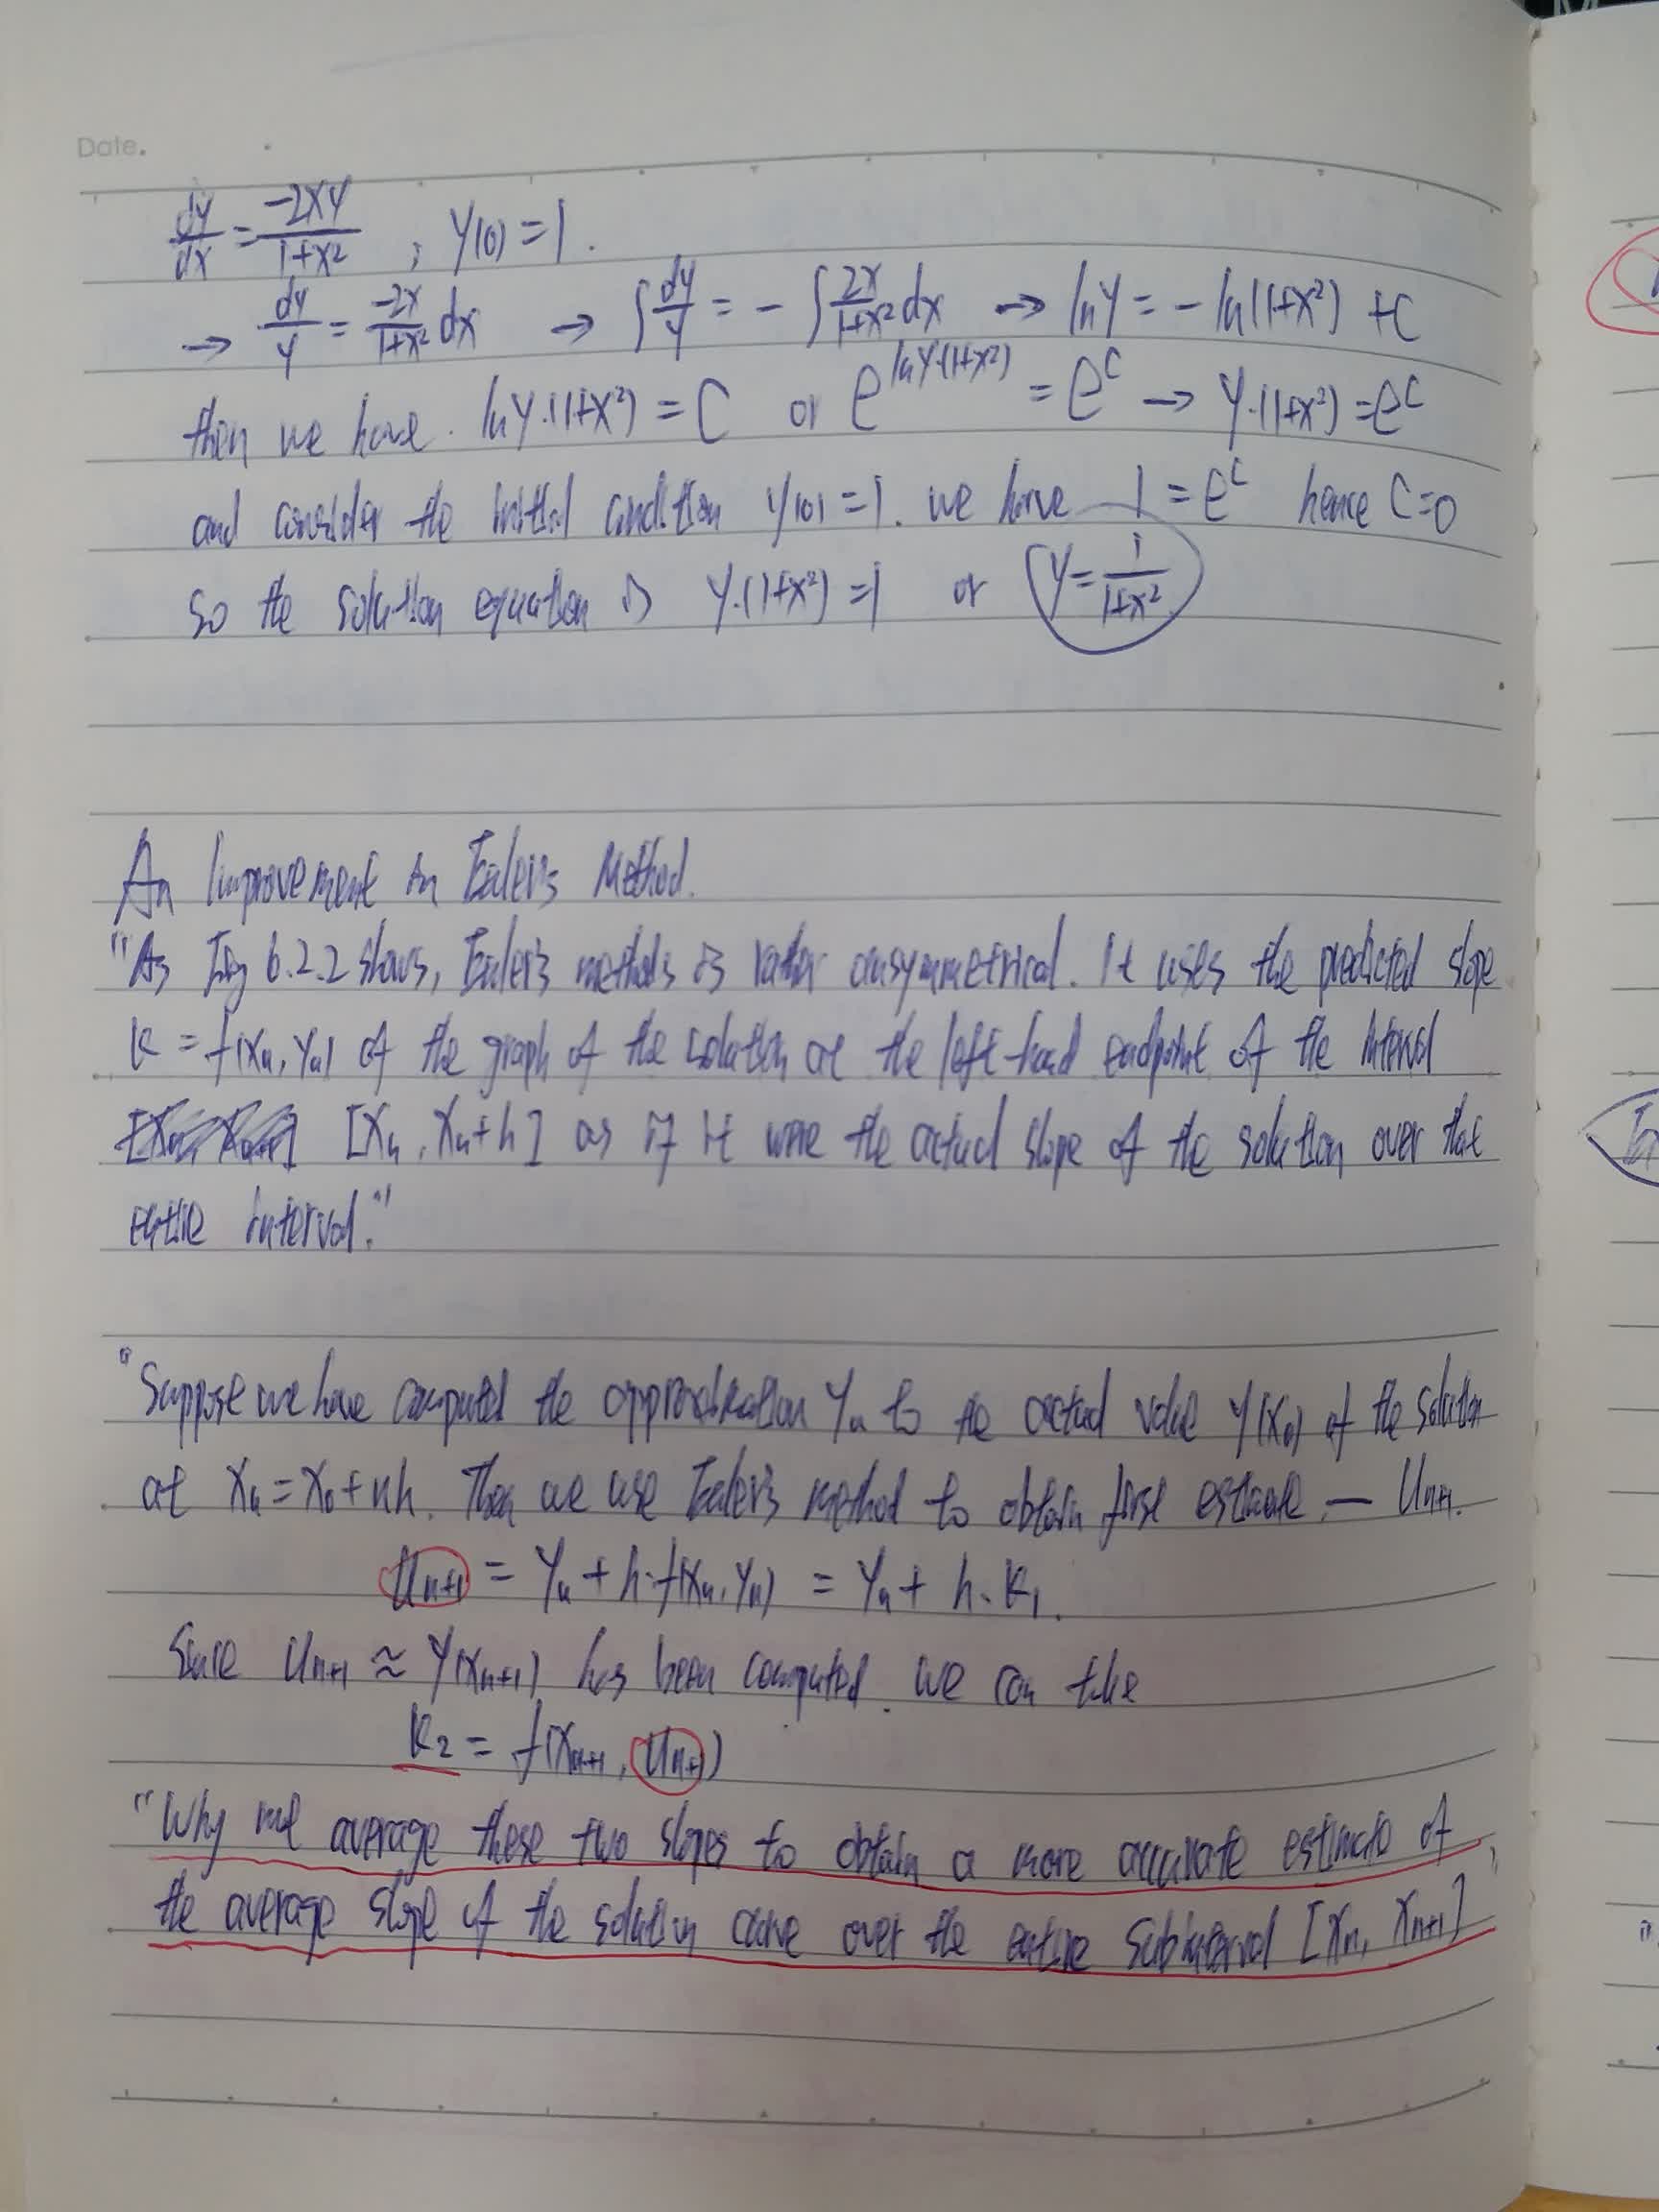 Date.
dy/dx = -2xy/1+x² ; y(0) = 1.
→ dy/y = -2x/1+x² dx → ∫ dy/y = - ∫ 2x/1+x² dx → ln y = - ln(1+x²) + C
then we have. ln y·(1+x²) = C or e^ln y·(1+x²) = e^C → y·(1+x²) = e^C
and consider the initial condition y(0) = 1. we have 1 = e^C hence C=0
so the solution equation is y·(1+x²) = 1 or y = 1/1+x²
An Improvement in Euler's Method.
"As Fig 6.2.2 shows, Euler's methods is rather unsymmetrical. It uses the predicted slope
k = f(xn, yn) of the graph of the solution at the left-hand endpoint of the interval
[xn, xn+h] as if it were the actual slope of the solution over that
entire interval."
"Suppose we have computed the approximation yn to the actual value y(x0) of the solution
at xn = x0 + nh. Then we use Euler's method to obtain first estimate — un+1.
un+1 = yn + h·f(xn, yn) = yn + h·k1.
Since un+1 ≈ y(xn+1) has been computed. we can take
k2 = f(xn+1, un+1)
"Why not average these two slopes to obtain a more accurate estimate of
the average slope of the solution curve over the entire subinterval [xn, xn+1]"